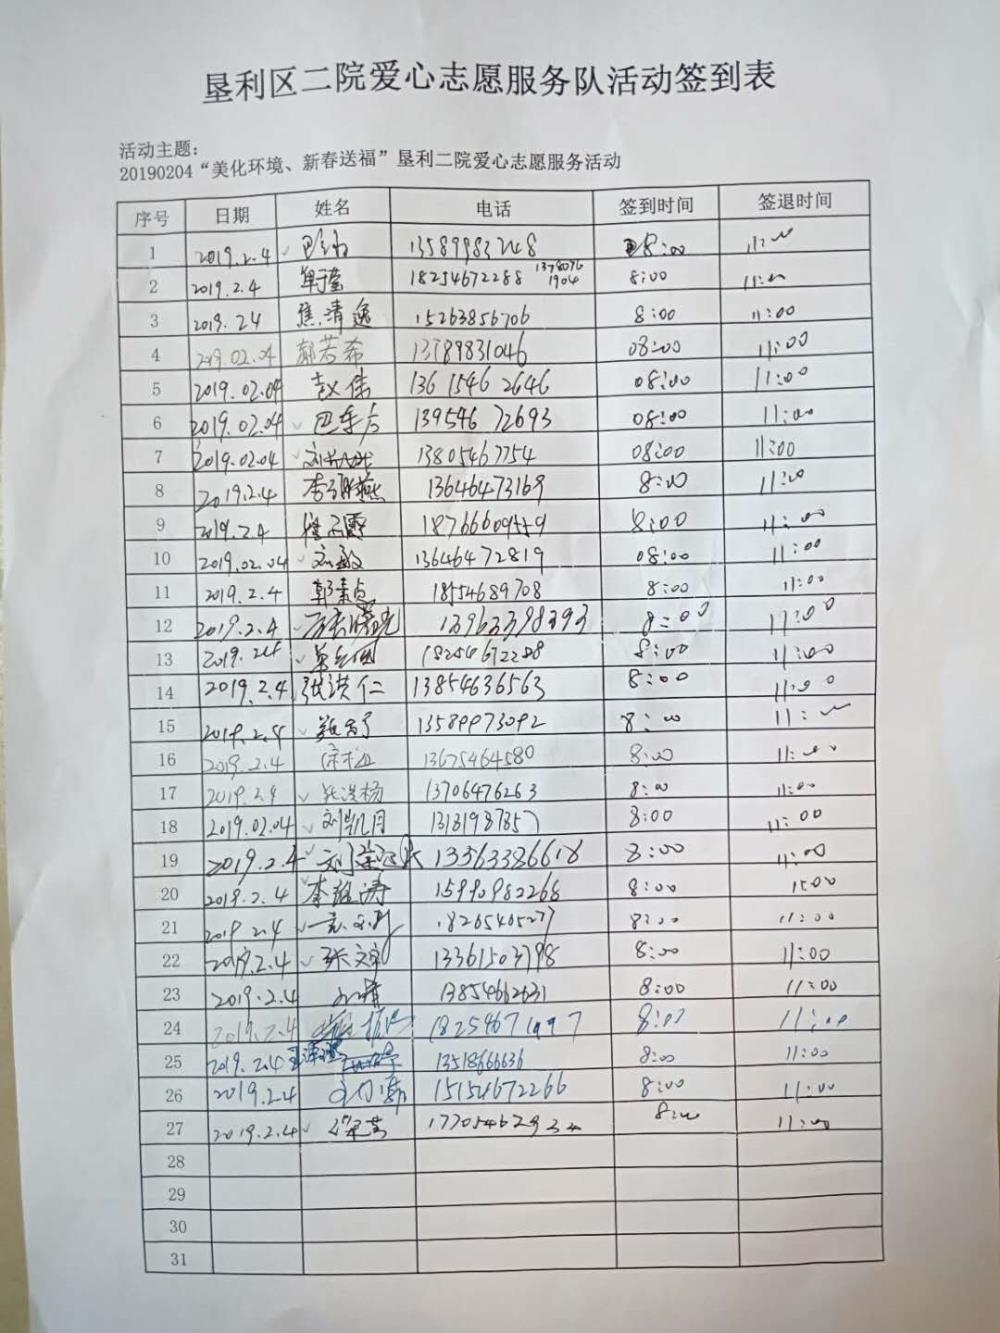 垦利区二院爱心志愿服务队活动签到表
活动主题：
20190204“美化环境、新春送福”垦利二院爱心志愿服务活动
序号 日期 姓名 电话 签到时间 签退时间
1 2019.2.4 13589983248 8:00 11:00
2 2019.2.4 18254672288 1378076 1904 8:00 11:00
3 2019.24 焦清逸 15263856706 8:00 11:00
4 2019.02.04 郭若希 13789831046 08:00 11:00
5 2019.02.04 赵伟 136 1546 2646 08:00 11:00
6 2019.02.04 139546 72693 08:00 11:00
7 2019.02.04 13805467754 08:00 11:00
8 2019.2.4 13646473169 8:00 11:00
9 2019.2.4 8:00 11:00
10 2019.02.04 刘敏 13646472819 08:00 11:00
11 2019.2.4 18554689708 8:00 11:00
12 2019.2.4 13963398393 8:00 11:00
13 2019.2.4 18254672288 8:00 11:00
14 2019.2.4 张洪仁 13854636563 8:00 11:00
15 2019.2.4 13589973092 8:00 11:00
16 2019.2.4 13675464580 8:00 11:00
17 2019.2.4 13706476263 8:00 11:00
18 2019.02.04 刘凯月 13181987857 8:00 11:00
19 2019.2.4 13563386618 8:00 11:00
20 2019.2.4 15990982268 8:00 11:00
21 2019.2.4 18265405277 8:00 11:00
22 2019.2.4 张文宇 13361503798 8:00 11:00
23 2019.2.4 13854662631 8:00 11:00
24 2019.2.4 18254671997 8:00 11:00
25 2019.2.4 13518666636 8:00 11:00
26 2019.2.4 15154672266 8:00 11:00
27 2019.2.4 8:00 11:00
28
29
30
31